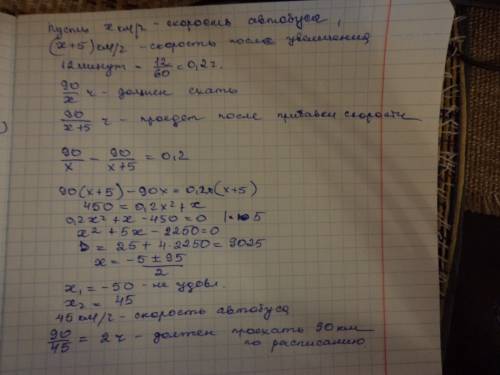 Пусть x км/ч - скорость автобуса,
(x+5) км/ч - скорость после увеличения
12 минут = 12/60 = 0,2 ч.
90/x ч - должен ехать
90/(x+5) ч - проедет после прибавки скорости
90/x - 90/(x+5) = 0,2
90(x+5) - 90x = 0,2x(x+5)
450 = 0,2x² + x
0,2x² + x - 450 = 0 | · 5
x² + 5x - 2250 = 0
D = 25 + 4·2250 = 9025
x = (-5 ± 95)/2
x₁ = -50 - не удовл.
x₂ = 45
45 км/ч - скорость автобуса
90/45 = 2 ч - должен проехать 90 км
по расписанию